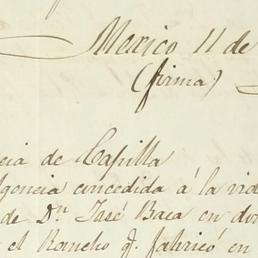 Mexico 11 de
(firma)
cia de Capilla
lgencia concedida á la vid
de Dn José Baca en don
el Rancho q. fabricó en